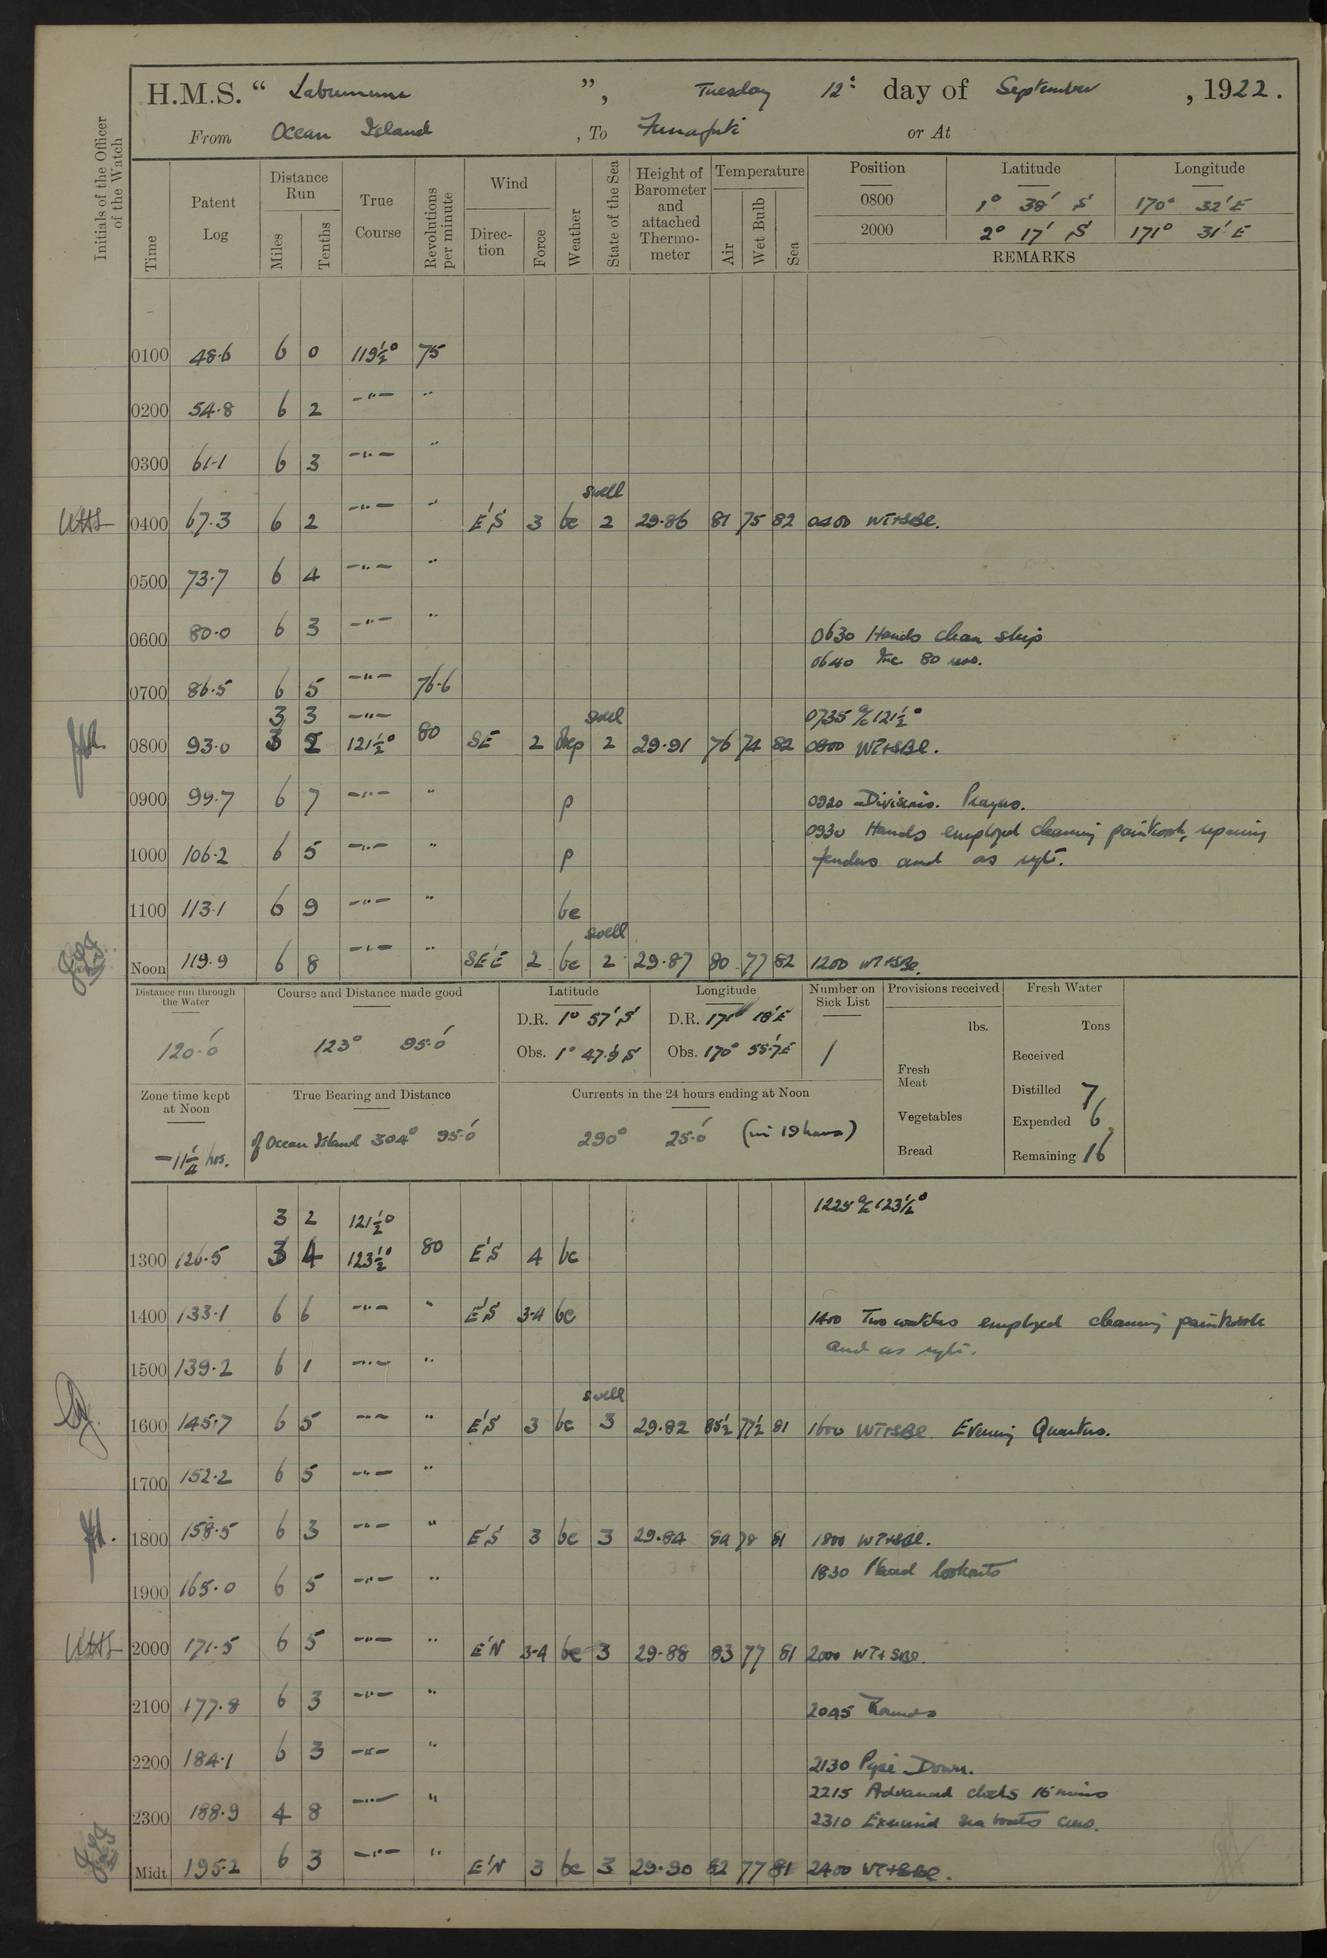 H.M.S. “ Laburnum ”, Tuesday 12th day of September, 1922.
From Ocean Island, To Funafuti or At
Initials of the Officer of the Watch
Time Patent Log Distance Run Miles Tenths True Course Revolutions per minute Wind Direction Force Weather State of the Sea Height of Barometer and attached Thermometer Temperature Air Wet Bulb Sea
Position Latitude Longitude
0800 1° 38' S 170° 32' E
2000 2° 17' S 171° 31' E
REMARKS
0100 48.6 6 0 119½° 75
0200 54.8 6 2 —"— "
0300 61.1 6 3 —"— "
swell
0400 67.3 6 2 —"— " E'S 3 bc 2 29.86 81 75 82 0400 WT+SBl.
0500 73.7 6 4 —"— "
0600 80.0 6 3 —"— " 0630 Hands clean ship
0640 Inc 80 revs.
0700 86.5 6 5 —"— 76.6
3 3 —"— swell 0735 a/c 121½°
0800 93.0 3 2 121½° 80 SE 2 2 29.91 76 74 82 0800 WT+SBl.
0900 99.7 6 7 —"— " p 0920 Divisions. Prayers.
0930 Hands employed cleaning paintwork,
1000 106.2 6 5 —"— " p fenders and as reqte.
1100 113.1 6 9 —"— " bc
swell
Noon 119.9 6 8 —"— " SE'E 2 bc 2 29.87 80 77 82 1200 WT+SBl.
Distance run through the Water
120.0'
Course and Distance made good
123° 95.0'
Latitude
D.R. 1° 57' S
Obs. 1° 47.5 S
Longitude
D.R. 171° 18' E
Obs. 170° 55.7 E
Number on Sick List
1
Provisions received
lbs.
Fresh Meat
Vegetables
Bread
Fresh Water
Tons
Received
Distilled 7
Expended 6
Remaining 16
Zone time kept at Noon
−11¼ hrs.
True Bearing and Distance
of Ocean Island 304° 95.0'
Currents in the 24 hours ending at Noon
290° 25.0' (in 19 hours)
3 2 121½° 1225 a/c 123½°
1300 126.5 3 4 123½° 80 E'S 4 bc
1400 133.1 6 6 —"— " E'S 3-4 bc 1400 Two watches employed cleaning paintwork
and as reqte.
1500 139.2 6 1 —"— "
swell
1600 145.7 6 5 —"— " E'S 3 bc 3 29.82 85½ 77½ 81 1600 WT+SBl. Evening Quarters.
1700 152.2 6 5 —"— "
1800 158.5 6 3 —"— " E'S 3 bc 3 29.84 84 78 81 1800 WT+SBl.
1830 Placed lookouts
1900 165.0 6 5 —"— "
2000 171.5 6 5 —"— " E'N 3-4 bc 3 29.88 83 77 81 2000 WT+SBl.
2100 177.8 6 3 —"— " 2045 Rounds
2200 184.1 6 3 —"— " 2130 Pipe Down.
2215 Advanced clocks 15 mins
2300 188.9 4 8 —"— " 2310 Exercised sea boats crew.
Midt 195.2 6 3 —"— " E'N 3 bc 3 29.90 82 77 81 2400 WT+SBl.